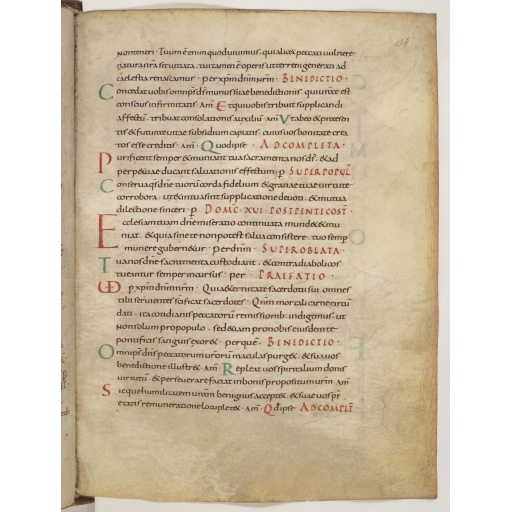 non teneri. Tuum ē enim quod uiuimus. quia licet peccati uulnere
natura nr̄a sit uitiata. tui tamen ē operis ut terreni generati ad
caelestia renascamur. per xp̄m dn̄m nr̄m. BENEDICTIO.
Concedat uobis omnip̄s ds̄ munus suae benedictionis. qui ur̄ae est
conscius infirmitatis. Am̄ Et qui uobis tribuit supplicandi
affectū. tribuat consolationis auxiliū. am̄ Ut ab eo & presen
tis & futurae uitae subsidium capiatis. cuius uos bonitate crea
tos esse creditis. am̄. Quod ipse. AD COMPLETA.
Purificent semper & muniant tua sacramenta nos ds̄. & ad
perpetuae ducant saluationis effectum. p̱ SUPER POPUL̄
Conserua qs dn̄e tuorū corda fidelium & gratiae tuae uirtute
corrobora. ut & in tua sint supplicatione deuoti. & mutua
dilectione sinceri. p̱ DOMC̄. XVI. POST PENTECOST̄.
Ecclesiam tuam dn̄e miseratio continuata mund& & mu
niat. & quia sine te non potest salua consistere. tuo semp̱
munere gubern&ur. Per dn̄m. SUPER OBLATA.
Tua nos dn̄e sacramenta custodiant. & contra diabolicos
tueantur semper incursus. per. PRAEFATIO.
VD p̱ xp̄m dn̄m nr̄m. Qui aeternitate sacerdotii sui. omnes
tibi seruientes scificat sacerdotes. Qnm̄ mortali carne circū
dati. ita cotidianis peccatorū remissionib; indigemus. ut
non solum pro populo. sed &iam pro nobis eiusdem te
pontificis sanguis exoret. per quem. BENEDICTIO.
Omnip̄s ds̄ peccatorum ur̄orū maculas purg&. & sua uos
benedictione illustr&. am̄. Repleat uos spiritalium donis
uirtutū. & perseuerare faciat in bonis propositum ur̄m. am̄
Sicque humilitatem ur̄am benignus accept&. & suae uos pi&
etatis remuneratione locuplet&. am̄. Qd̄ ipse AD COMPL̄T.